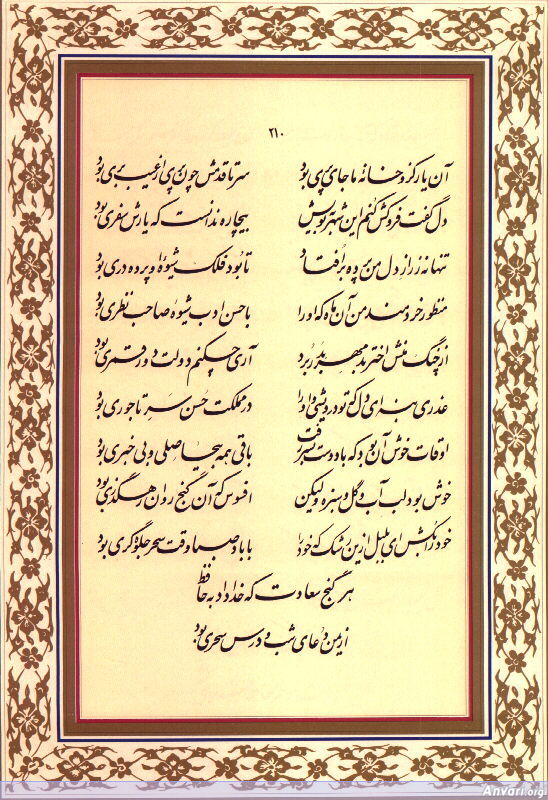 ۲۱۰
آن یار کزو خانهٔ ما جای پری بود سر تا قدمش چون پری از عیب بری بود
دل گفت فروکش کنم این شهر ببویش بیچاره ندانست که یارش سفری بود
تنها نه ز راز دل من پرده برافتاد تا بود فلک شیوهٔ او پرده دری بود
منظور خردمند من آن ماه که او را با حسن ادب شیوهٔ صاحب نظری بود
از چنگ منش اختر بدمهر بدر برد آری چکنم دولت دور قمری بود
عذری بنه ای دل که تو درویشی و او را در مملکت حسن سر تاجوری بود
اوقات خوش آن بود که با دوست بسر رفت باقی همه بیحاصلی و بی خبری بود
خوش بود لب آب و گل و سبزه ولیکن افسوس که آن گنج روان رهگذری بود
خود را بکش ای بلبل ازین رشک که خود را با باد صبا وقت سحر جلوه گری بود
هر گنج سعادت که خدا داد به حافظ
از یمن دعای شب و درس سحری بود
Anvari.org